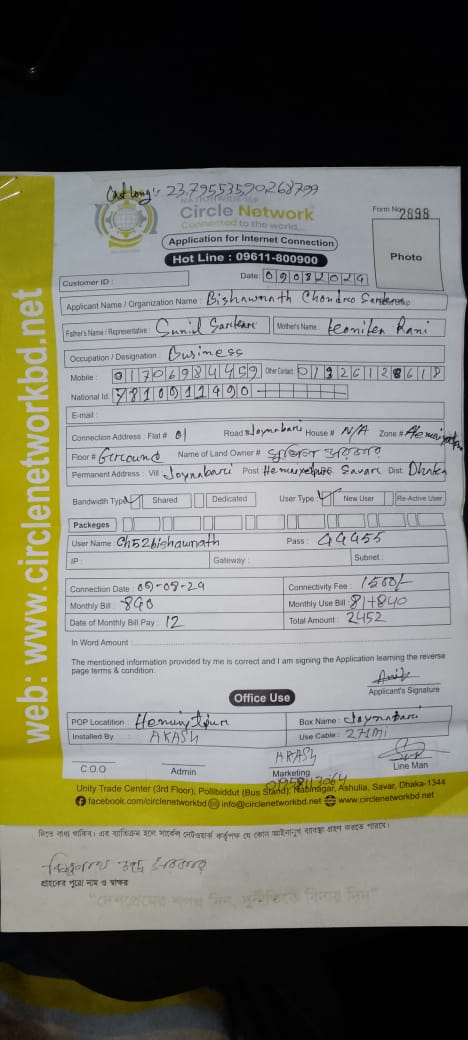 23.795535,90268799
NATIONWIDE ISP
Circle Network
Connected to the world...
Form No: 2898
Application for Internet Connection
Hot Line : 09611-800900
Photo
Customer ID :
Date: 09082024
Applicant Name / Organization Name : Bishawnath Chondro
Father's Name / Representative : Sunil Sarkar
Mother's Name :
Occupation / Designation : Business
Mobile : 01706984459 Other Contact
National Id:
E-mail :
Connection Address : Flat # 01 Road # Joynabari House # N/A Zone #
Floor # Ground Name of Land Owner #
Permanent Address : Vill Joynabari Post Savar Dist: Dhaka
Bandwidth Type Shared Dedicated User Type New User Re-Active User
Packeges
User Name : Ch52bishawnath Pass : 44455
IP : Gateway : Subnet :
Connection Date : 09-08-24 Connectivity Fee : 1500/-
Monthly Bill : 840 Monthly Use Bill :
Date of Monthly Bill Pay : 12 Total Amount : 2452
In Word Amount :
The mentioned information provided by me is correct and I am signing the Application learning the reverse
page terms & condition.
Applicant's Signature
Office Use
POP Locatition : Box Name : Joynabari
Installed By : AKASH Use Cable : 271Mi
C.O.O Admin AKASH
Marketing Line Man
Unity Trade Center (3rd Floor), Pollibiddut (Bus Stand), Nabinagar, Ashulia, Savar, Dhaka-1344
facebook.com/circlenetworkbd info@circlenetworkbd.net www.circlenetworkbd.net
web: www.circlenetworkbd.net
দিতে বাধ্য থাকিব। এর ব্যতিক্রম হলে সার্কেল নেটওয়ার্ক কর্তৃপক্ষ যে কোন আইনানুগ ব্যবস্থা গ্রহণ করতে পারবে।
বিশ্বনাথ চন্দ্র সরকার
গ্রাহকের পুরো নাম ও স্বাক্ষর